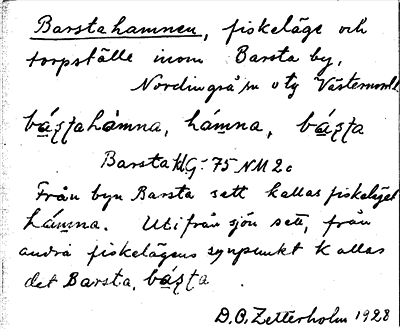 Barstahamnen, fiskeläge och
torpställe inom Barsta by,
Nordingrå sn o ty Västernorrl.
bás̨t̨ahàmna, hámna, bás̨t̨a
Barsta HG: 75 NM 2c
Från byn Barsta sett kallas fiskeläget
hámna. Utifrån sjön sett, från
andra fiskelägens synpunkt kallas
det Barsta, bás̨t̨a
D.O. Zetterholm 1928